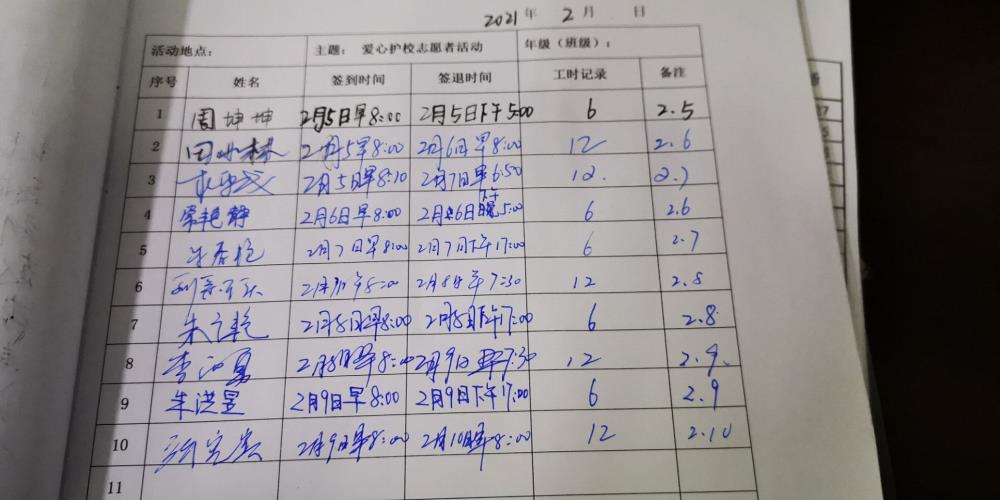 2021年 2月 日
活动地点： 主题： 爱心护校志愿者活动 年级（班级）：
序号 姓名 签到时间 签退时间 工时记录 备注
1 周坤坤 2月5日早8:00 2月5日下午5:00 6 2.5
2 2月5早8:00 2月6日早8:00 12 2.6
3 2月5日早8:10 2月7日早6:50 12. 2.7
4 常艳静 2月6日早8:00 2月6日下午5:00 6 2.6
5 2月7日早8:00 2月7日下午17:00 6 2.7
6 12 2.8
7 2月8日早8:00 2月8日下午17:00 6 2.8
8 2月8日早8:00 2月9日早7:30 12 2.9.
9 朱洪昱 2月9日早8:00 2月9日下午17:00 6 2.9
10 2月9日早8:00 2月10日早8:00 12 2.10
11